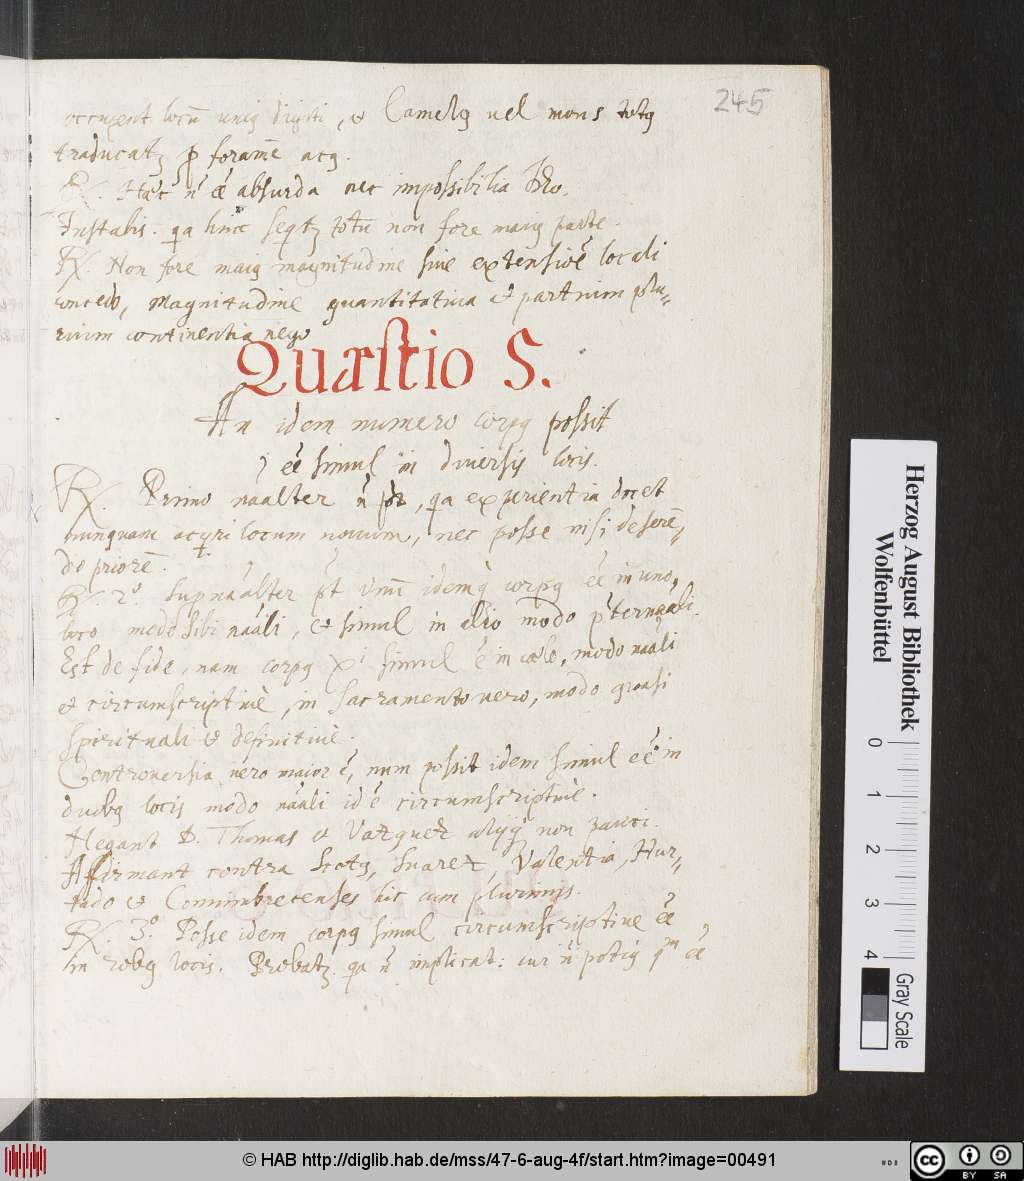 245
occupent locũ uniꝯ digiti, et Camelꝯ vel mons totꝯ
traducatꝫ ꝑ foramẽ acꝯ.
℞. Hæc ñ ẽẽ absurda nec impossibilia Deo.
Instabis. qa hinc seqtꝫ totũ non fore maiꝯ parte.
℞. Non fore maiꝯ magnitudine sive extensiõe locali
concedo, magnitudine quantitativa et partium plu-
rium continentia nego
Quæstio 5.
An idem numero corpꝯ possit
ẽẽ simul in diversis locis.
℞. Primo näalter ñ pöt, qa experientia docet
nunquam acqri locum novum, nec posse nisi deserẽ-
do priorẽ.
℞. 2º. supnäalter põt unũ idemq corpꝯ ẽẽ in uno
loco modo sibi näali, et simul in alio modo p̃ternäali.
Est de fide, nam corpꝯ Xi simul ẽ in cælo, modo näali
et circumscriptivè, in sacramento vero, modo quasi
spirituali et definitivè.
Controversia vero maior ẽ, num possit idem simul eẽ in
duobꝯ locis modo näali id ẽ circumscriptivè.
Negant D. Thomas et Vazquez alijq non pauci.
Affirmant contra Scotꝯ, Suarez, Valentia, Hur-
tado et Conimbrecenses hic cum plurimis.
℞. 3º. Posse idem corpꝯ simul circumscriptive ẽẽ
in 2obꝯ locis. Probatꝫ qa ñ implicat: cur ñ potiꝯ qm ẽẽ
Herzog August Bibliothek
Wolfenbüttel
0 1 2 3 4
Gray Scale
© HAB http://diglib.hab.de/mss/47-6-aug-4f/start.htm?image=00491
cc BY SA